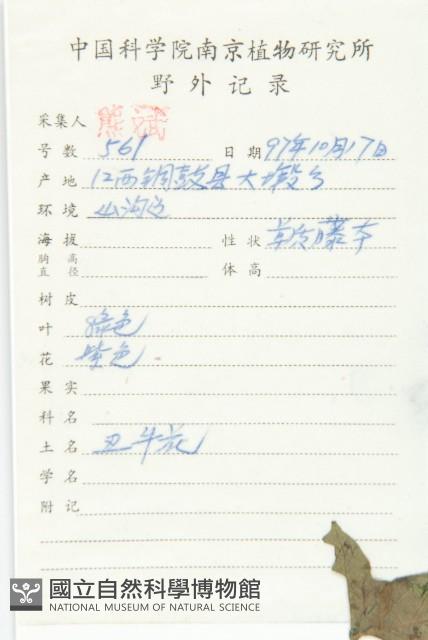 中国科学院南京植物研究所
野外记录
采集人 熊斌
号数 561 日期 97年10月17日
产地 江西铜鼓县大塅乡
环境 山沟边
海拔 性状 草质藤本
胸高直径 体高
树皮
叶 绿色
花 紫色
果实
科名
土名 丑牛花
学名
附记
國立自然科學博物館
NATIONAL MUSEUM OF NATURAL SCIENCE